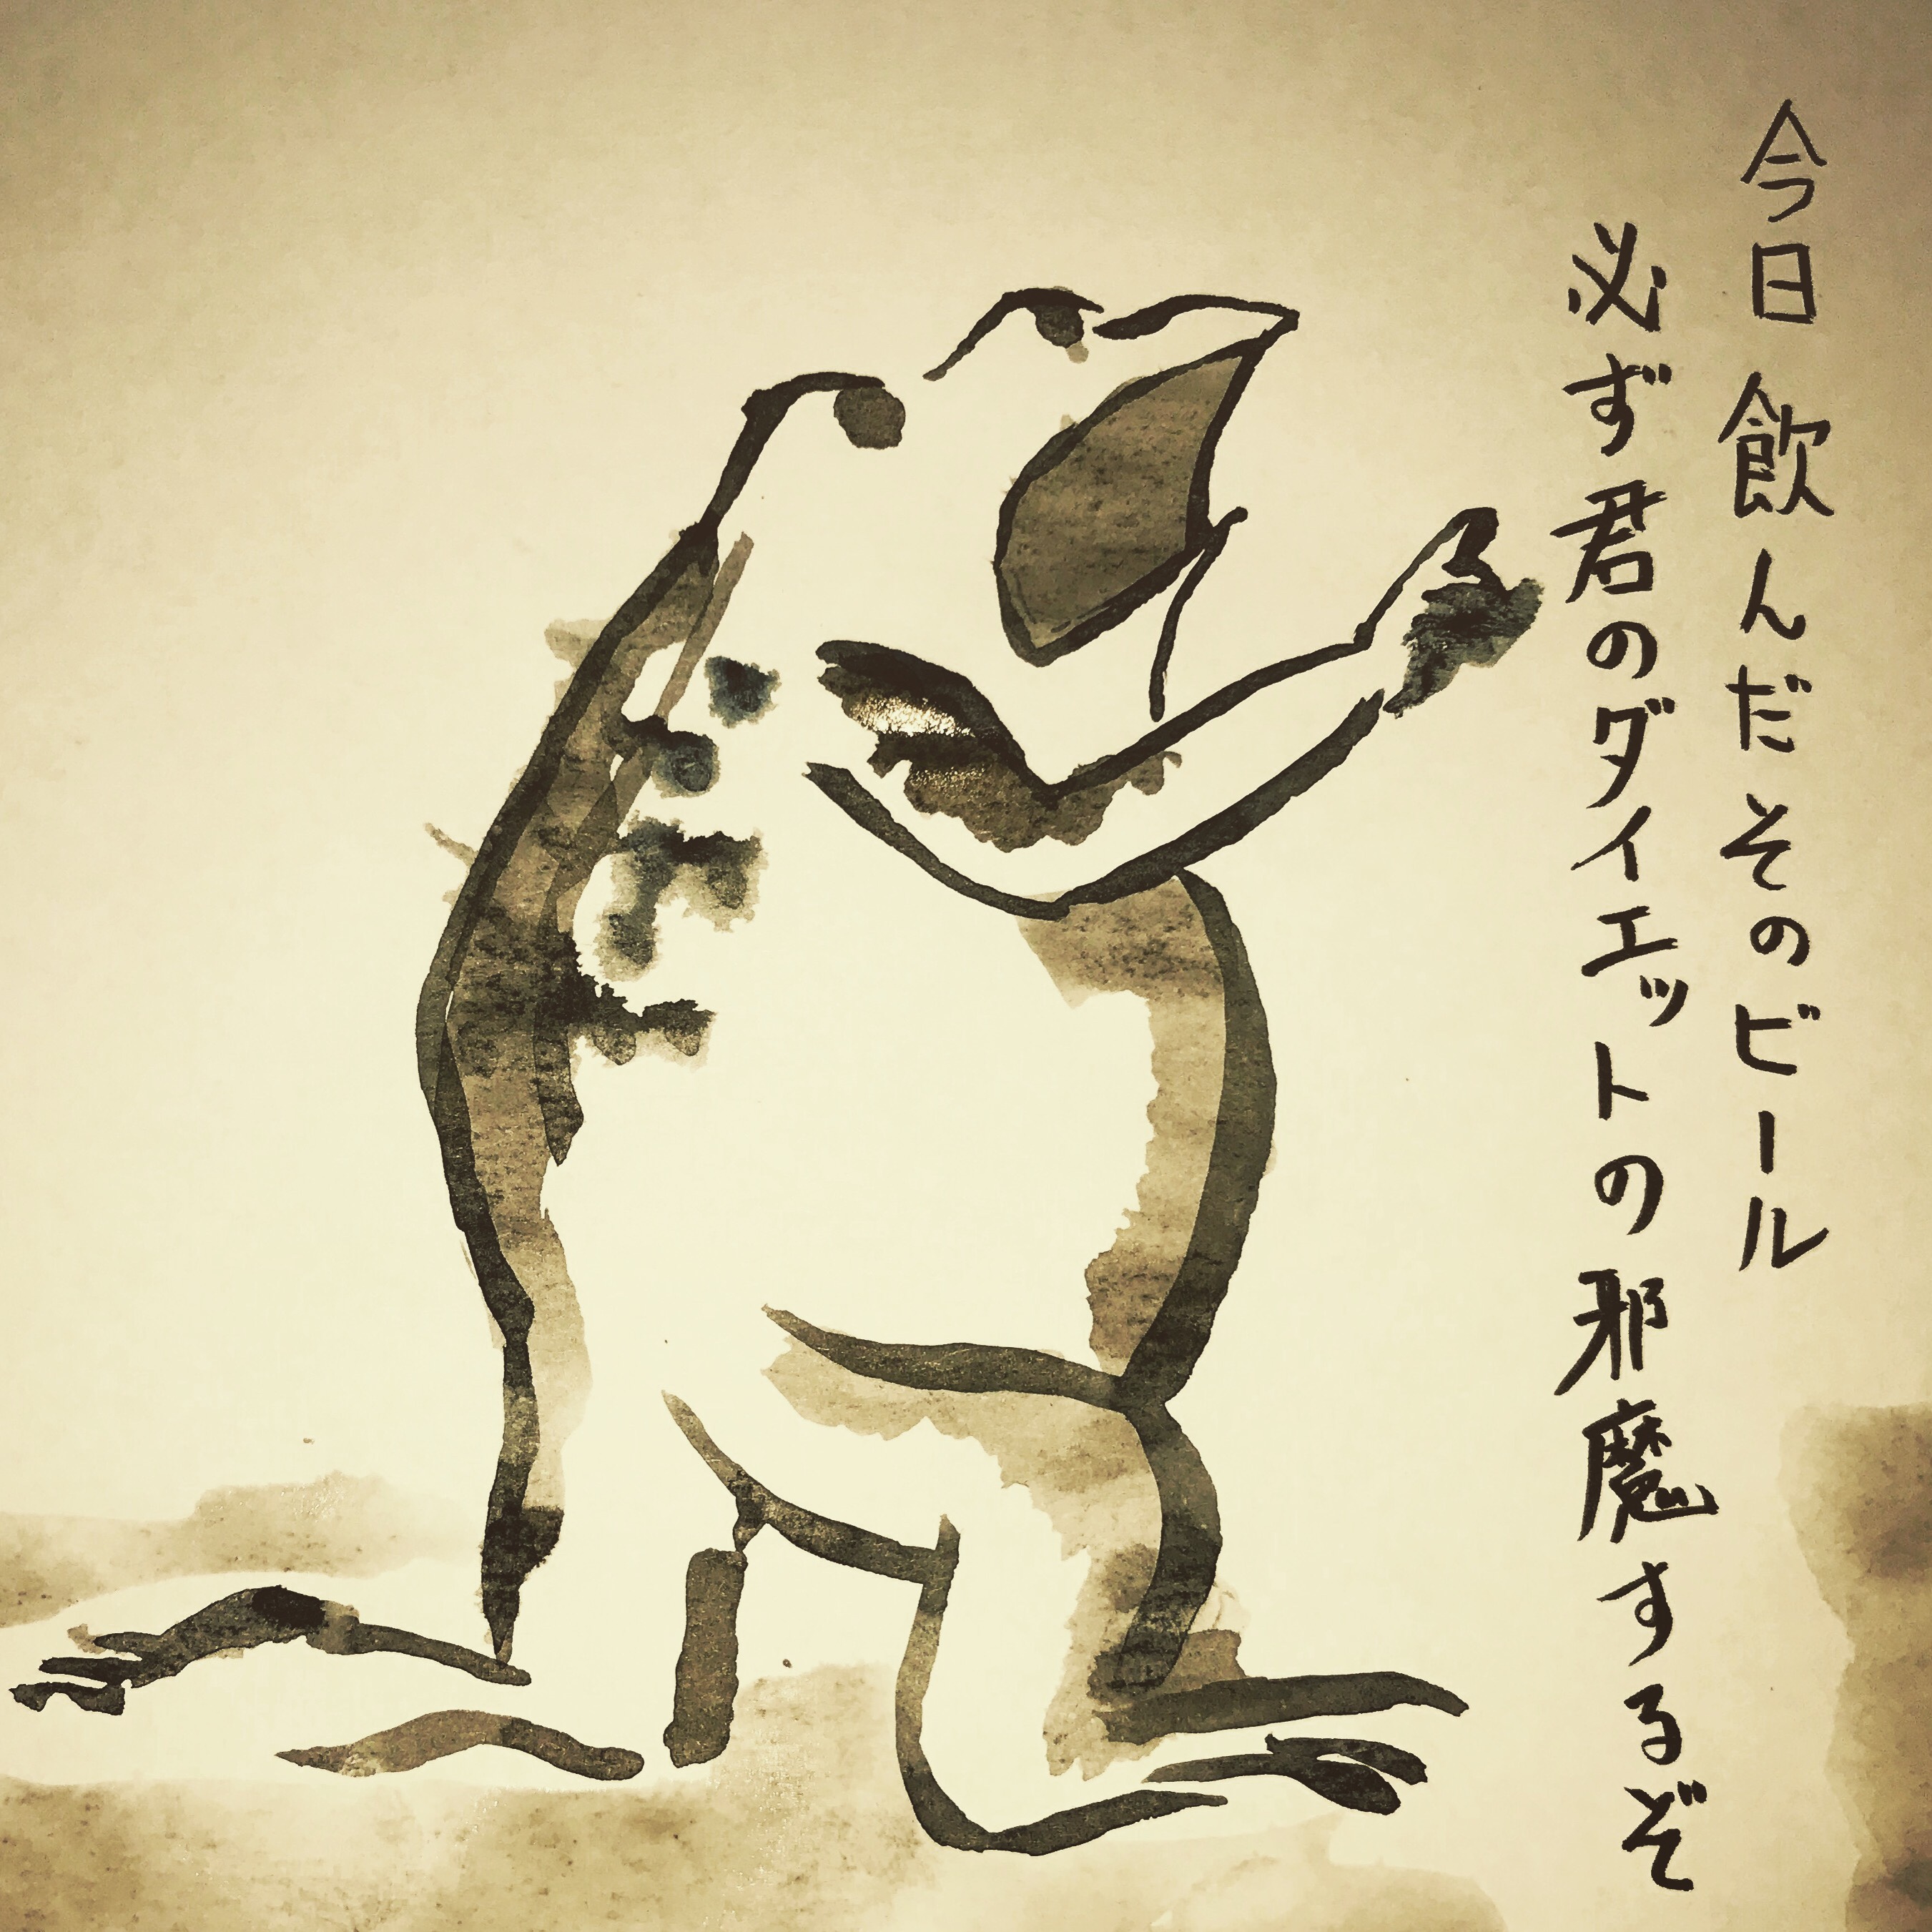 今日飲んだそのビール
必ず君のダイエットの邪魔するぞ